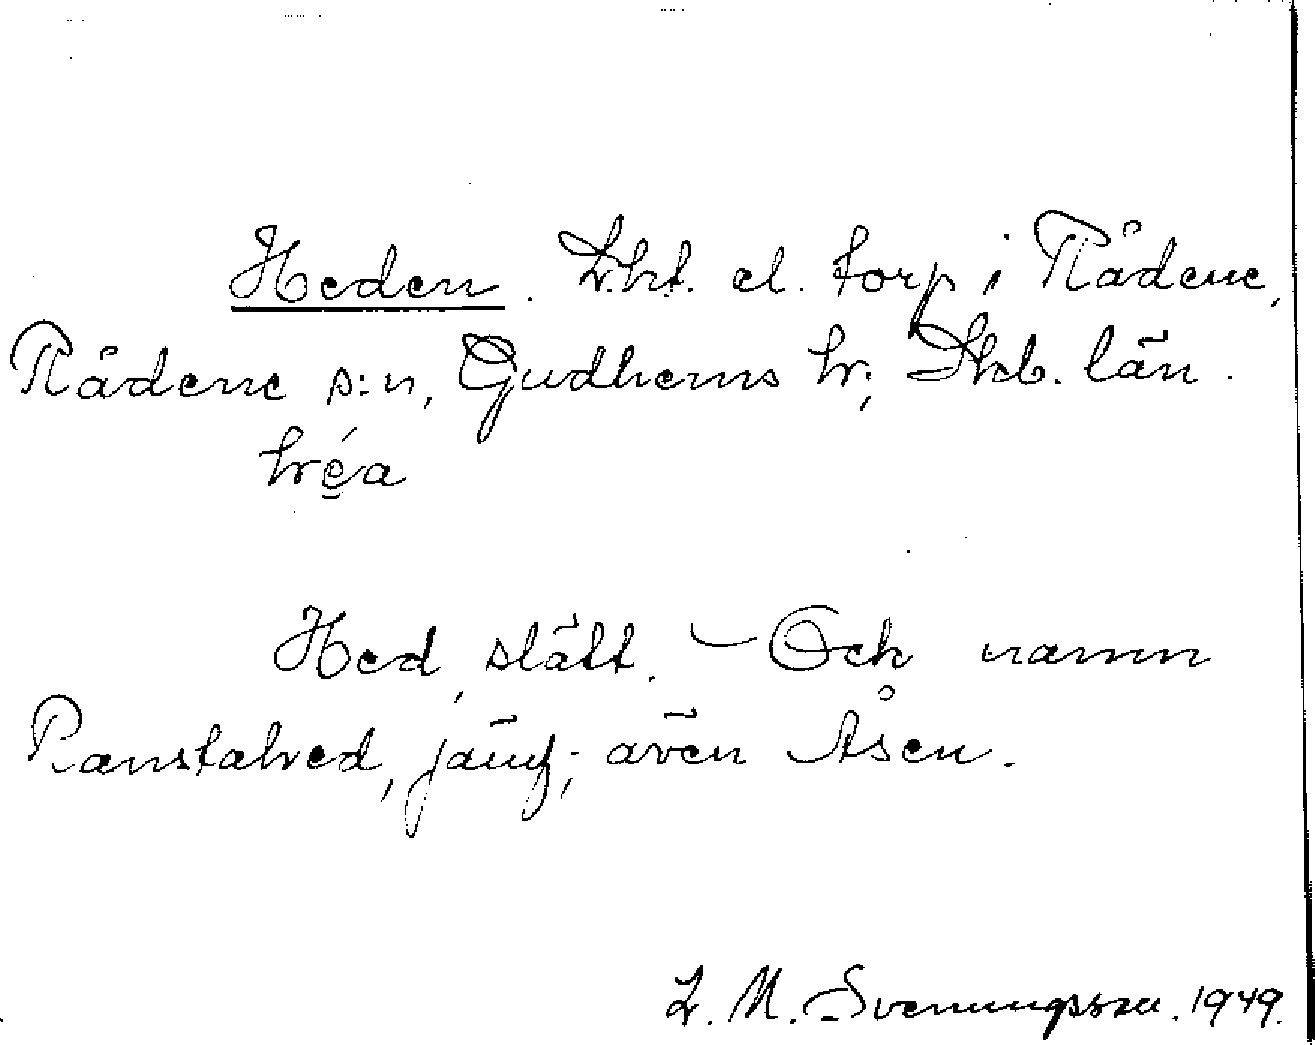 Heden. Lht. el. torp i Rådene,
Rådene s:n, Gudhems hr; Skb. län.
héa
Hed, slätt. – Och namn
Ranstahed, jäuf; även Åsen.
L. M. Svenungsson. 1949.